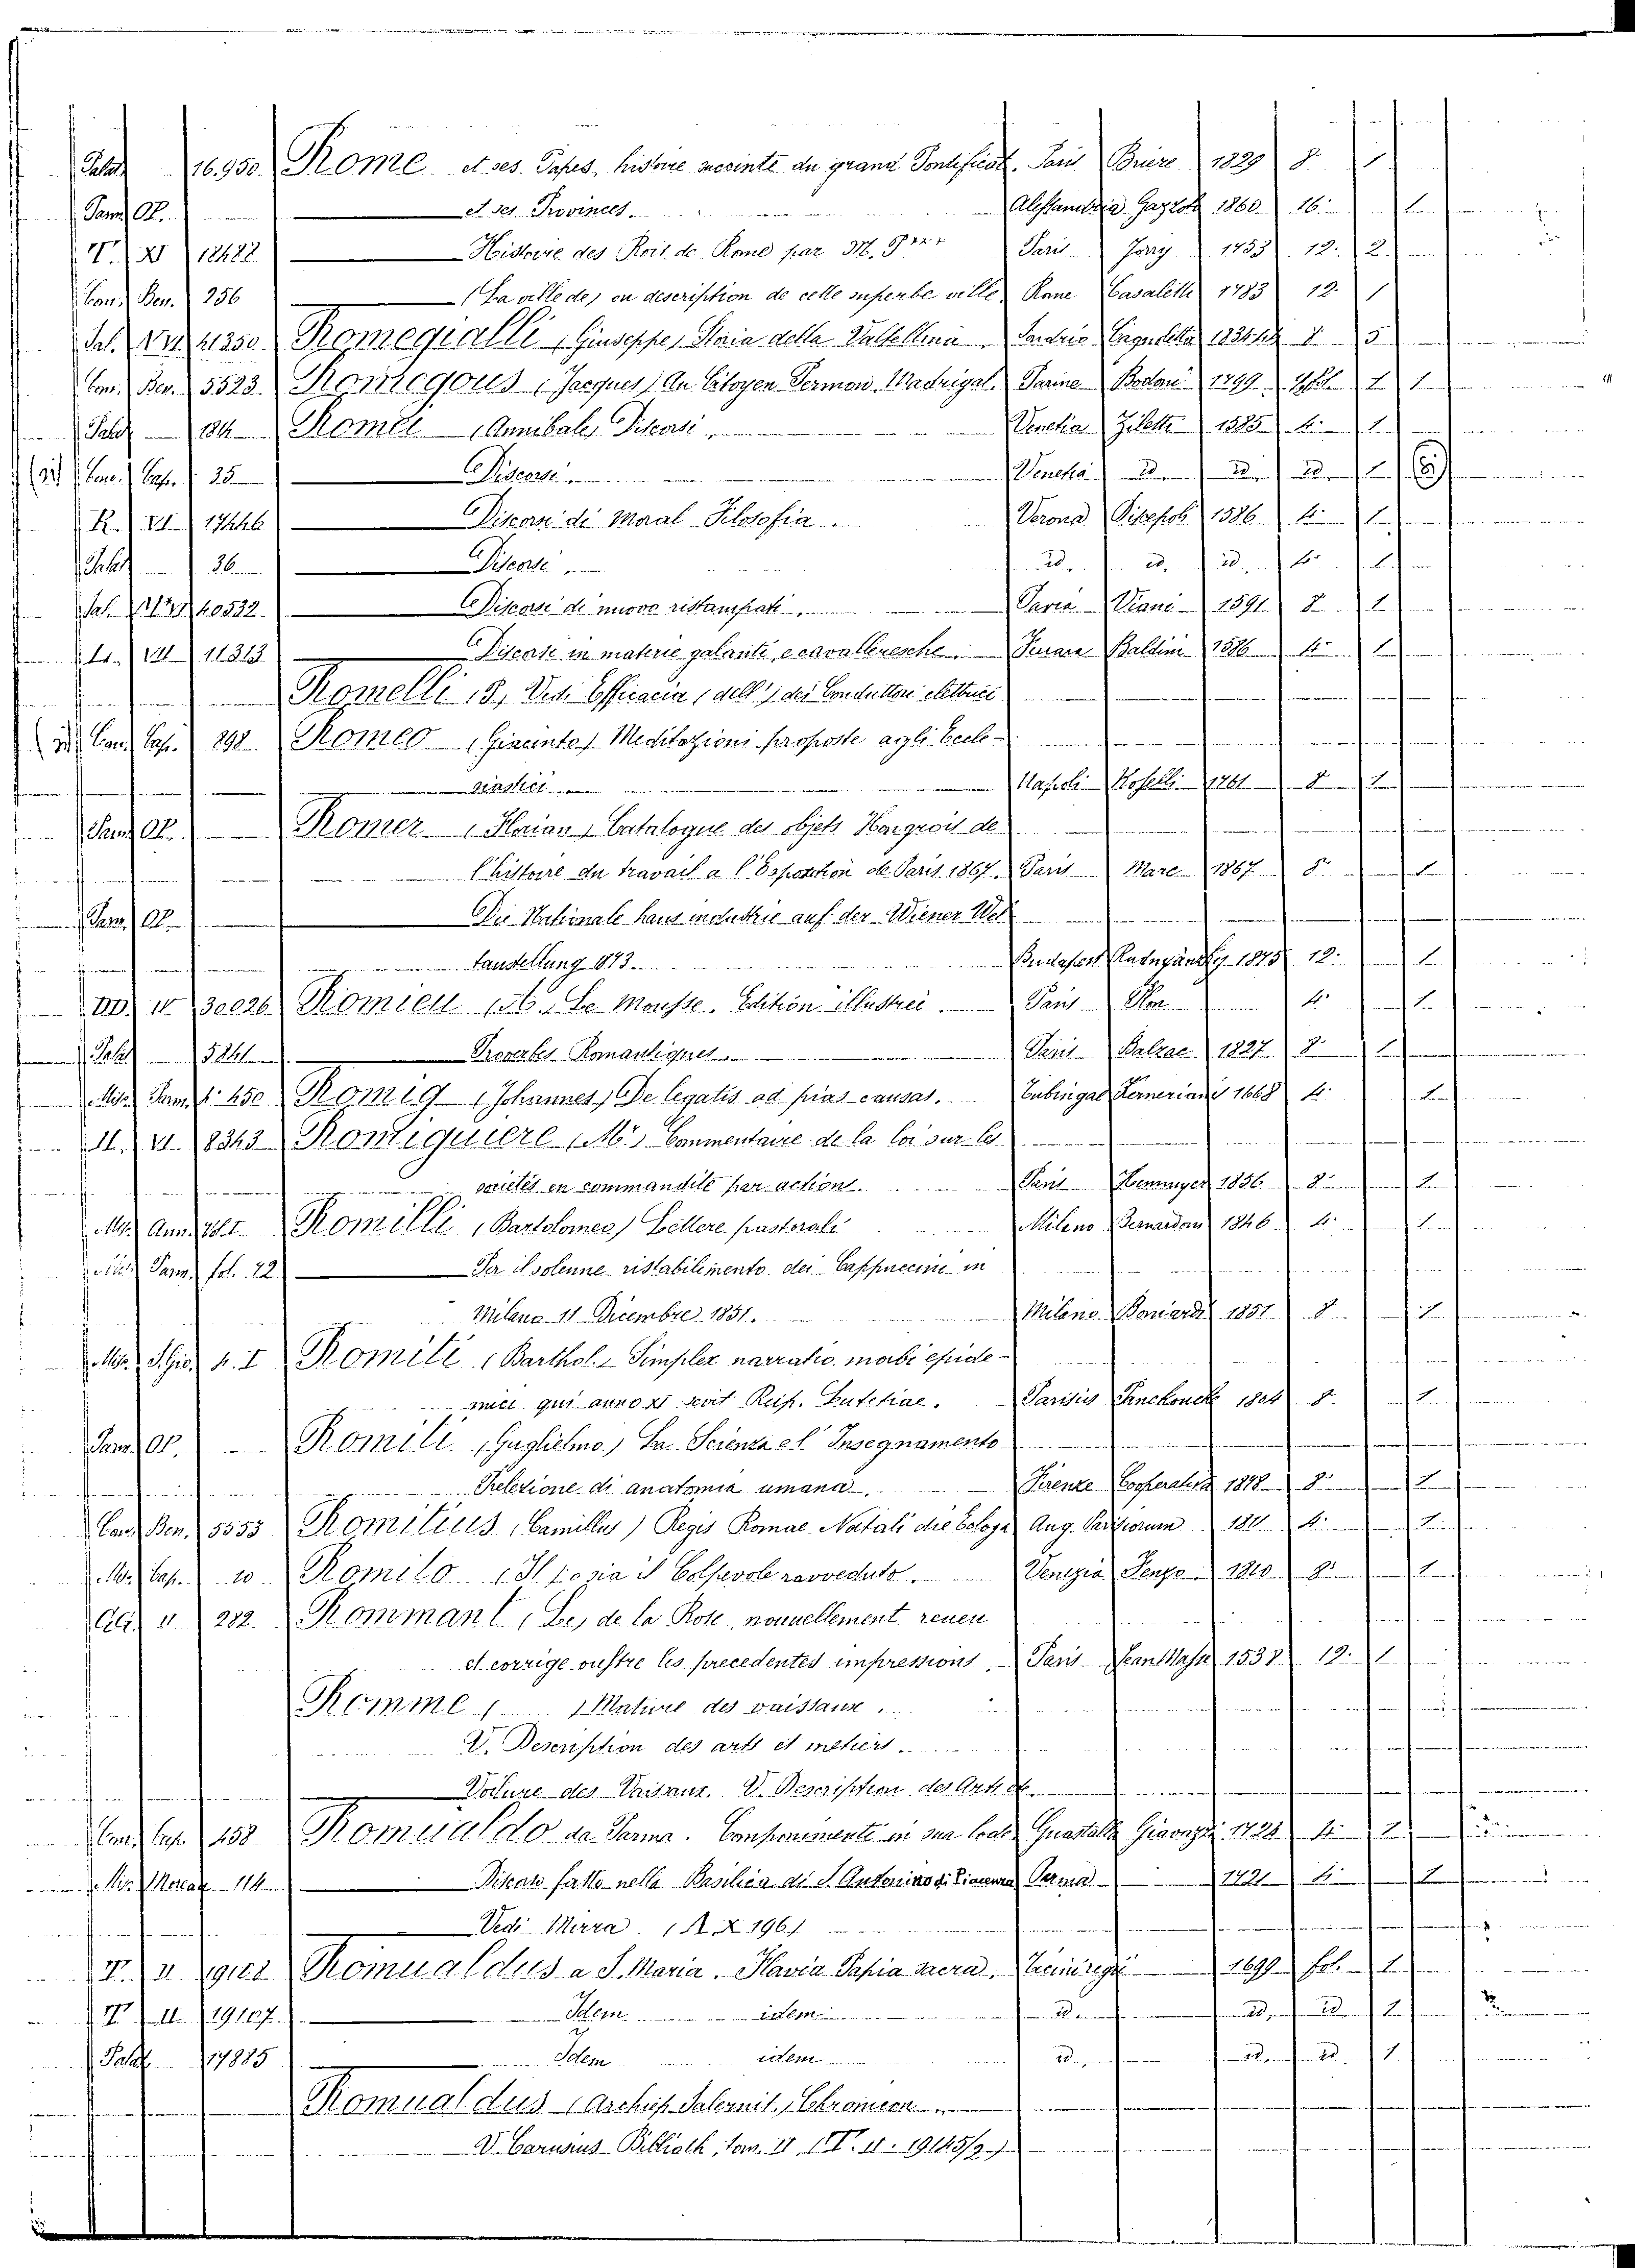 Palat 16.950 Rome et ses Papes, histoire succinte du grand Pontificat. Paris Brière 1829 8° 1
Parm. Op. et ses Provinces. Alessandria Gazzotti 1860 16° 1
V. XI 12488 Histoire des Rois de Rome par M. P*** Paris Jorry 1753 12. 2
Con. Ben. 256 (La ville de) en description de cette superbe ville, Rome Casaletti 1783 12. 1
Pal. 11350 Romegialli (Giuseppe) Storia della Valtellina. Sondrio 8 5
Con. Ben. 5523 Romegous (Jacques) Au Citoyen Sermon. Madrigal. Parme Bodoni 1799 1
Palat 184 Romei (Annibale) Discorsi. Venetia Ziletti 1585 4° 1
(id) Conv. Cap. 35 Discorsi Venetia id. id. id. 1
R. VI 17446 Discorsi di Moral Filosofia. Verona Discepolo 1586 4° 1
Palat 36 Discorsi id. id. id. 4° 1
Pal. 40532 Discorsi di nuovo ristampati Pavia Viani 1591 8 1
VII 11313 Discorsi in materie galanti, e cavalleresche. Ferrara Baldini 1586 4° 1
Romelli (B.) Vedi Efficacia (dell') dei Conduttori elettrici
(id) Conv. Cap. 898 Romeo (Giacinto) Meditazioni proposte agli Eccle-
siastici Napoli Roselli 1761 8 1
Parm. Op. Romer (Florian) Catalogue des objets Hongrois de
l'histoire du travail a l'Esposition de Paris 1867. Paris Marc 1867 8° 1
Parm. Op. Die Nationale haus industrie auf der Wiener Wel
taustellung 873. Budapest 1875 12. 1
DD. IV 30026 Romieu (A.) Le Mousse. Edition illustrée. Paris Plon 4° 1
Palat 5241 Proverbes Romantiques Paris Balzac 1827 8° 1
Mis. Parm. 4° 450 Romig (Johannes) De legatis ad pias causas. Tubingae Kernerianis 1668 4° 1
VI 8343 Romiguiere (Mr.) Commentaire de la loi sur les
societés en commandite par actions. Paris Hennuyer 1856 8° 1
Mis. Ann. Romilli (Bartolomeo) Lettere pastorali Milano Bernardoni 1846 4° 1
Misc. Parm. fol. 22 Per il solenne ristabilimento dei Cappuccini in
Milano 11 Dicembre 1851. Milano Boniardi 1851 8° 1
Mis. S. Gio. 4. I Romiti (Barthol.) Simplex narratio morbi epide-
mici qui anno XI Reip. Lutetiae. Parisiis Panckoucke 1804 8° 1
Parm. Op. Romiti (Guglielmo) La Scienza e l'Insegnamento
Prelezione di anatomia umana. Firenze Cooperativa 1878 8° 1
Con. Ben. 5555 Romilius (Camillus) Regis Romae Natali die Ecloga Aug. 1811 4° 1
Mis. Cap. 10 Romilo (Il) ossia il Colpevole ravveduto. Venezia 1810 8° 1
II 282 Rommant, (Le) de la Rose, nouvellement reueu
et corrige oustre les precedentes impressions. Paris Jean 1538 12. 1
Romme, ( ) Mature des vaissaux.
V. Description des arts et metiers.
Voilure des Vaisaux. V. Description des Arts etc.
Con. Cap. 458 Romualdo da Parma. Componimenti in sua lode Guastalla Giavazzi 1724 4° 1
Mis. Moreau 114 Discorso fatto nella Basilica di S. Antonino di Piacenza Parma 1721 4° 1
Vedi Mirra (A. X 196)
V. II Romualdus a S. Maria. Flavia Papia sacra. Ticini regii 1699 fol. 1
V. II 19107 Idem idem id. id. id. 1
Palat 17885 Idem idem id. id. id. 1
Romualdus (Archiep. Salernit.) Chronicon
V. Carusius Biblioth. tom. II (V. II. 19145/2)